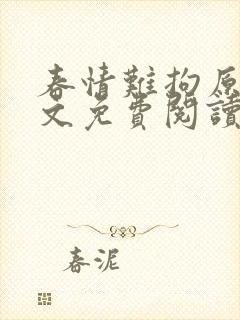 春情難拘原
文免費閱讀
春泥